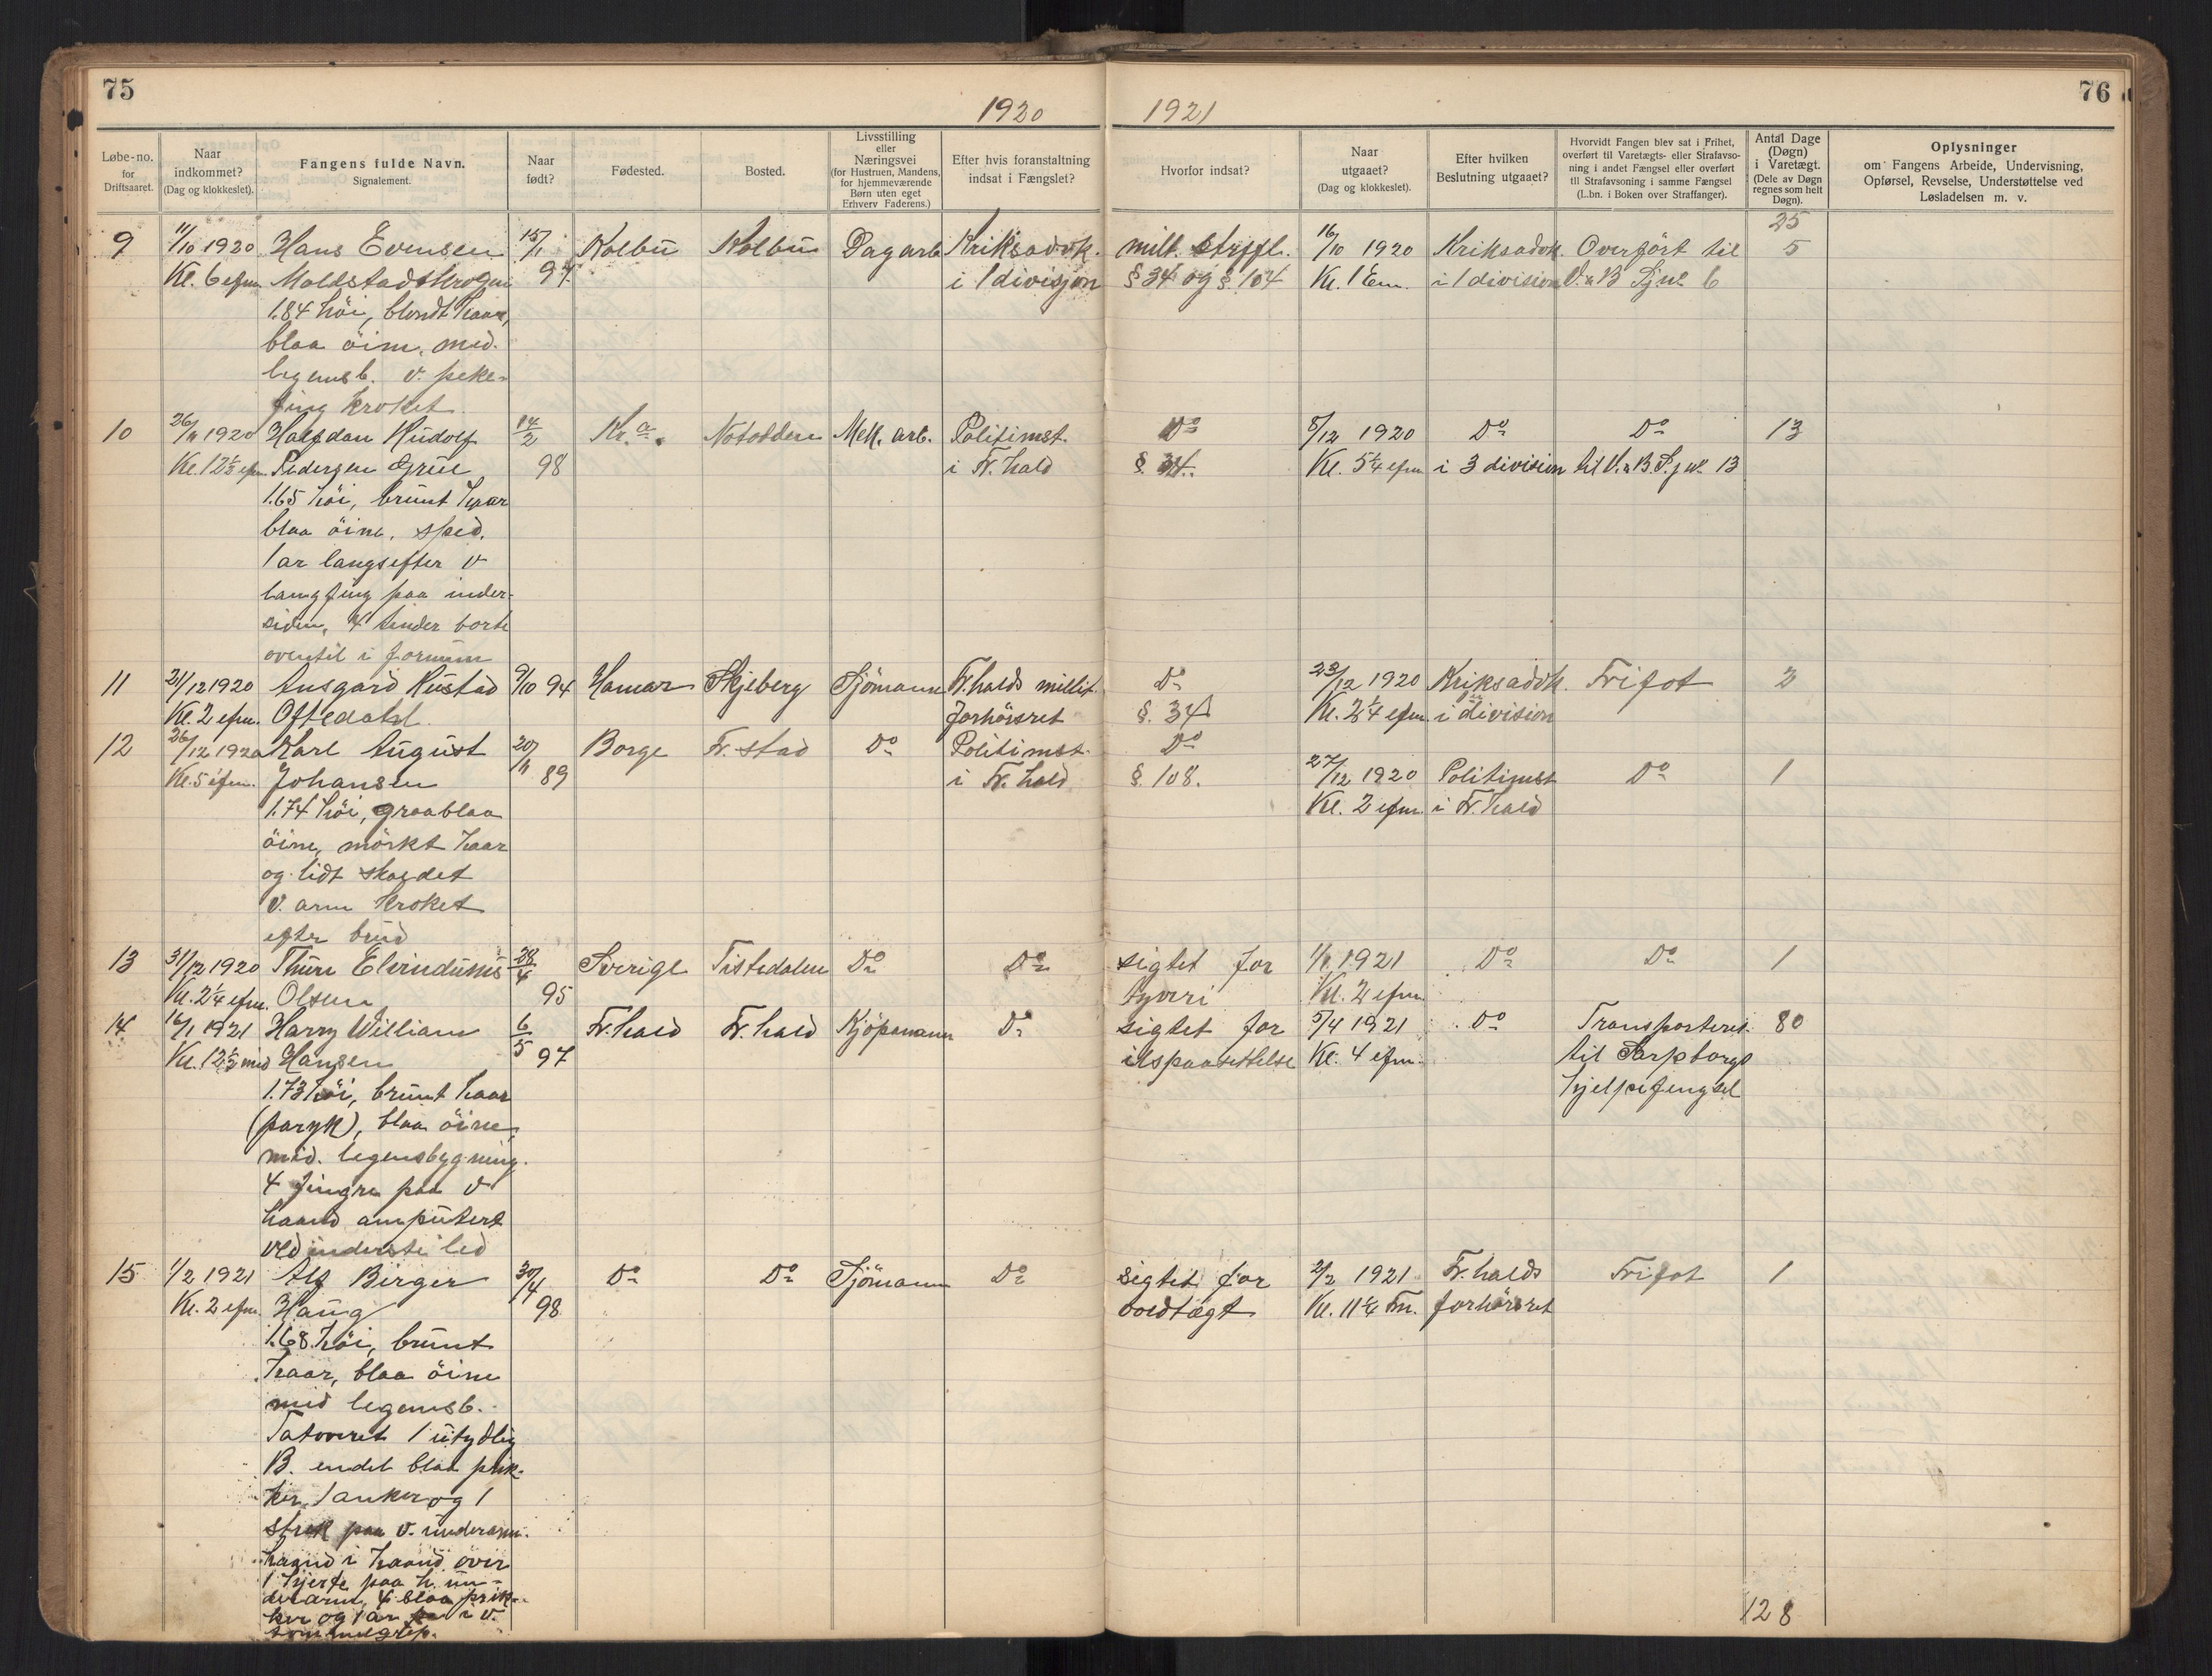 75
1920
1921
76
Løbe-no. for Driftsaaret.
Naar indkommet? (Dag og klokkeslet).
Fangens fulde Navn. Signalement.
Naar født?
Fødested.
Bosted.
Livsstilling eller Næringsvei (for Hustruen, Mandens, for hjemmeværende Børn uten eget Erhverv Faderens.)
Efter hvis foranstaltning indsat i Fængslet?
Hvorfor indsat?
Naar utgaaet? (Dag og klokkeslet).
Efter hvilken Beslutning utgaaet?
Hvorvidt Fangen blev sat i Frihet, overført til Varetægts- eller Strafavsoning i andet Fængsel eller overført til Strafavsoning i samme Fængsel (L.bn. i Boken over Straffanger).
Antal Dage (Døgn) i Varetægt. (Dele av Døgn regnes som helt Døgn).
Oplysninger om Fangens Arbeide, Undervisning, Opførsel, Revselse, Understøttelse ved Løsladelsen m. v.
25
9 11/10 1920 Hans Evensen 15/1 Kolbu Kolbu Dagarb Kriksadvk. milt. straffl. 16/10 1920 Kriksadvk. Overført til 5
Kl. 6 efm. Moldstadskrogen 97 i 1 divisjon § 34 og § 104 Kl. 1 Em. i 1 division V. & B Fj nr 6
1.84 höi, blondt haar,
blaa öine, mid.
legemsb. v. peke-
fing kroket
10 26/11 1920 Halfdan Rudolf 14/2 Kr.a. Notodden Mek. arb. Politimst. Do 8/12 1920 Do Do 13
Kl. 12½ efm Pedersen Grue 98 i Fr. hald § 34. Kl. 5¼ efm i 3 division til V. & B. Fj nr. 13
1.65 höi, brunt haar
blaa öine, sped.
1 ar langsefter v
langfing paa inder-
siden, 4 tinder borte
oventil i formum
11 21/12 1920 Ansgard Rustad 9/10 94 Hamar Skjeberg Sjömann Fr.halds millit. Do 23/12 1920 Kriksadvk. Frifot 2
Kl. 2 efm. Oftedahl forhörsret §. 34 Kl. 2¼ efm. i division
12 26/12 1920 Karl August 20/11 Borge Fr. stad Do Politimst. Do
Kl. 5 efm. Johansen 89 i Fr. hald § 108. 27/12 1920 Politimst Do 1
1.74 höi, graablaa Kl. 2 efm. i Fr. hald
öine, mörkt haar
og lidt skaldet
V. arm kroket
efter brud
13 31/12 1920 Thure Elvindums 28/4 Sverige Tistedalen Do Do sigtet for 1/1 1921 Do Do 1
Kl. 2¼ efm. Olsen 95 tyveri Kl. 2 efm.
14 16/1 1921 Harry William 6/5 Fr. hald Fr. hald Kjöpmann Do sigtet for 5/4 1921 Do Transportert 80
Kl. 12½ mid Hansen 97 ilspaasettelse Kl. 4 efm. til Sarpborgs
1.73 höi, brunt haar hjelpefengsel
(paryk), blaa öine,
mid. legemsbygning.
4 fingre paa v
haand amputert
ved inderste led
15 1/2 1921 Alf Birger 30/4 Do Do Sjömann Do sigtet for 2/2 1921 Fr. halds Frifot 1
Kl. 2 efm. Haug 98 voldtægt Kl. 11¼ Fm. forhörsret
1.68 höi, brunt
haar, blaa öine
mid legemsb.
Tatoveret 1 utydlig
B. endel blaa prik-
ker, 1 anker og 1
strek paa v. underarm.
haand i haand over
1 hjerte paa h. un-
derarm, 4 blaa prik-
ker og 1 ar i v.
tommelgrep.
128